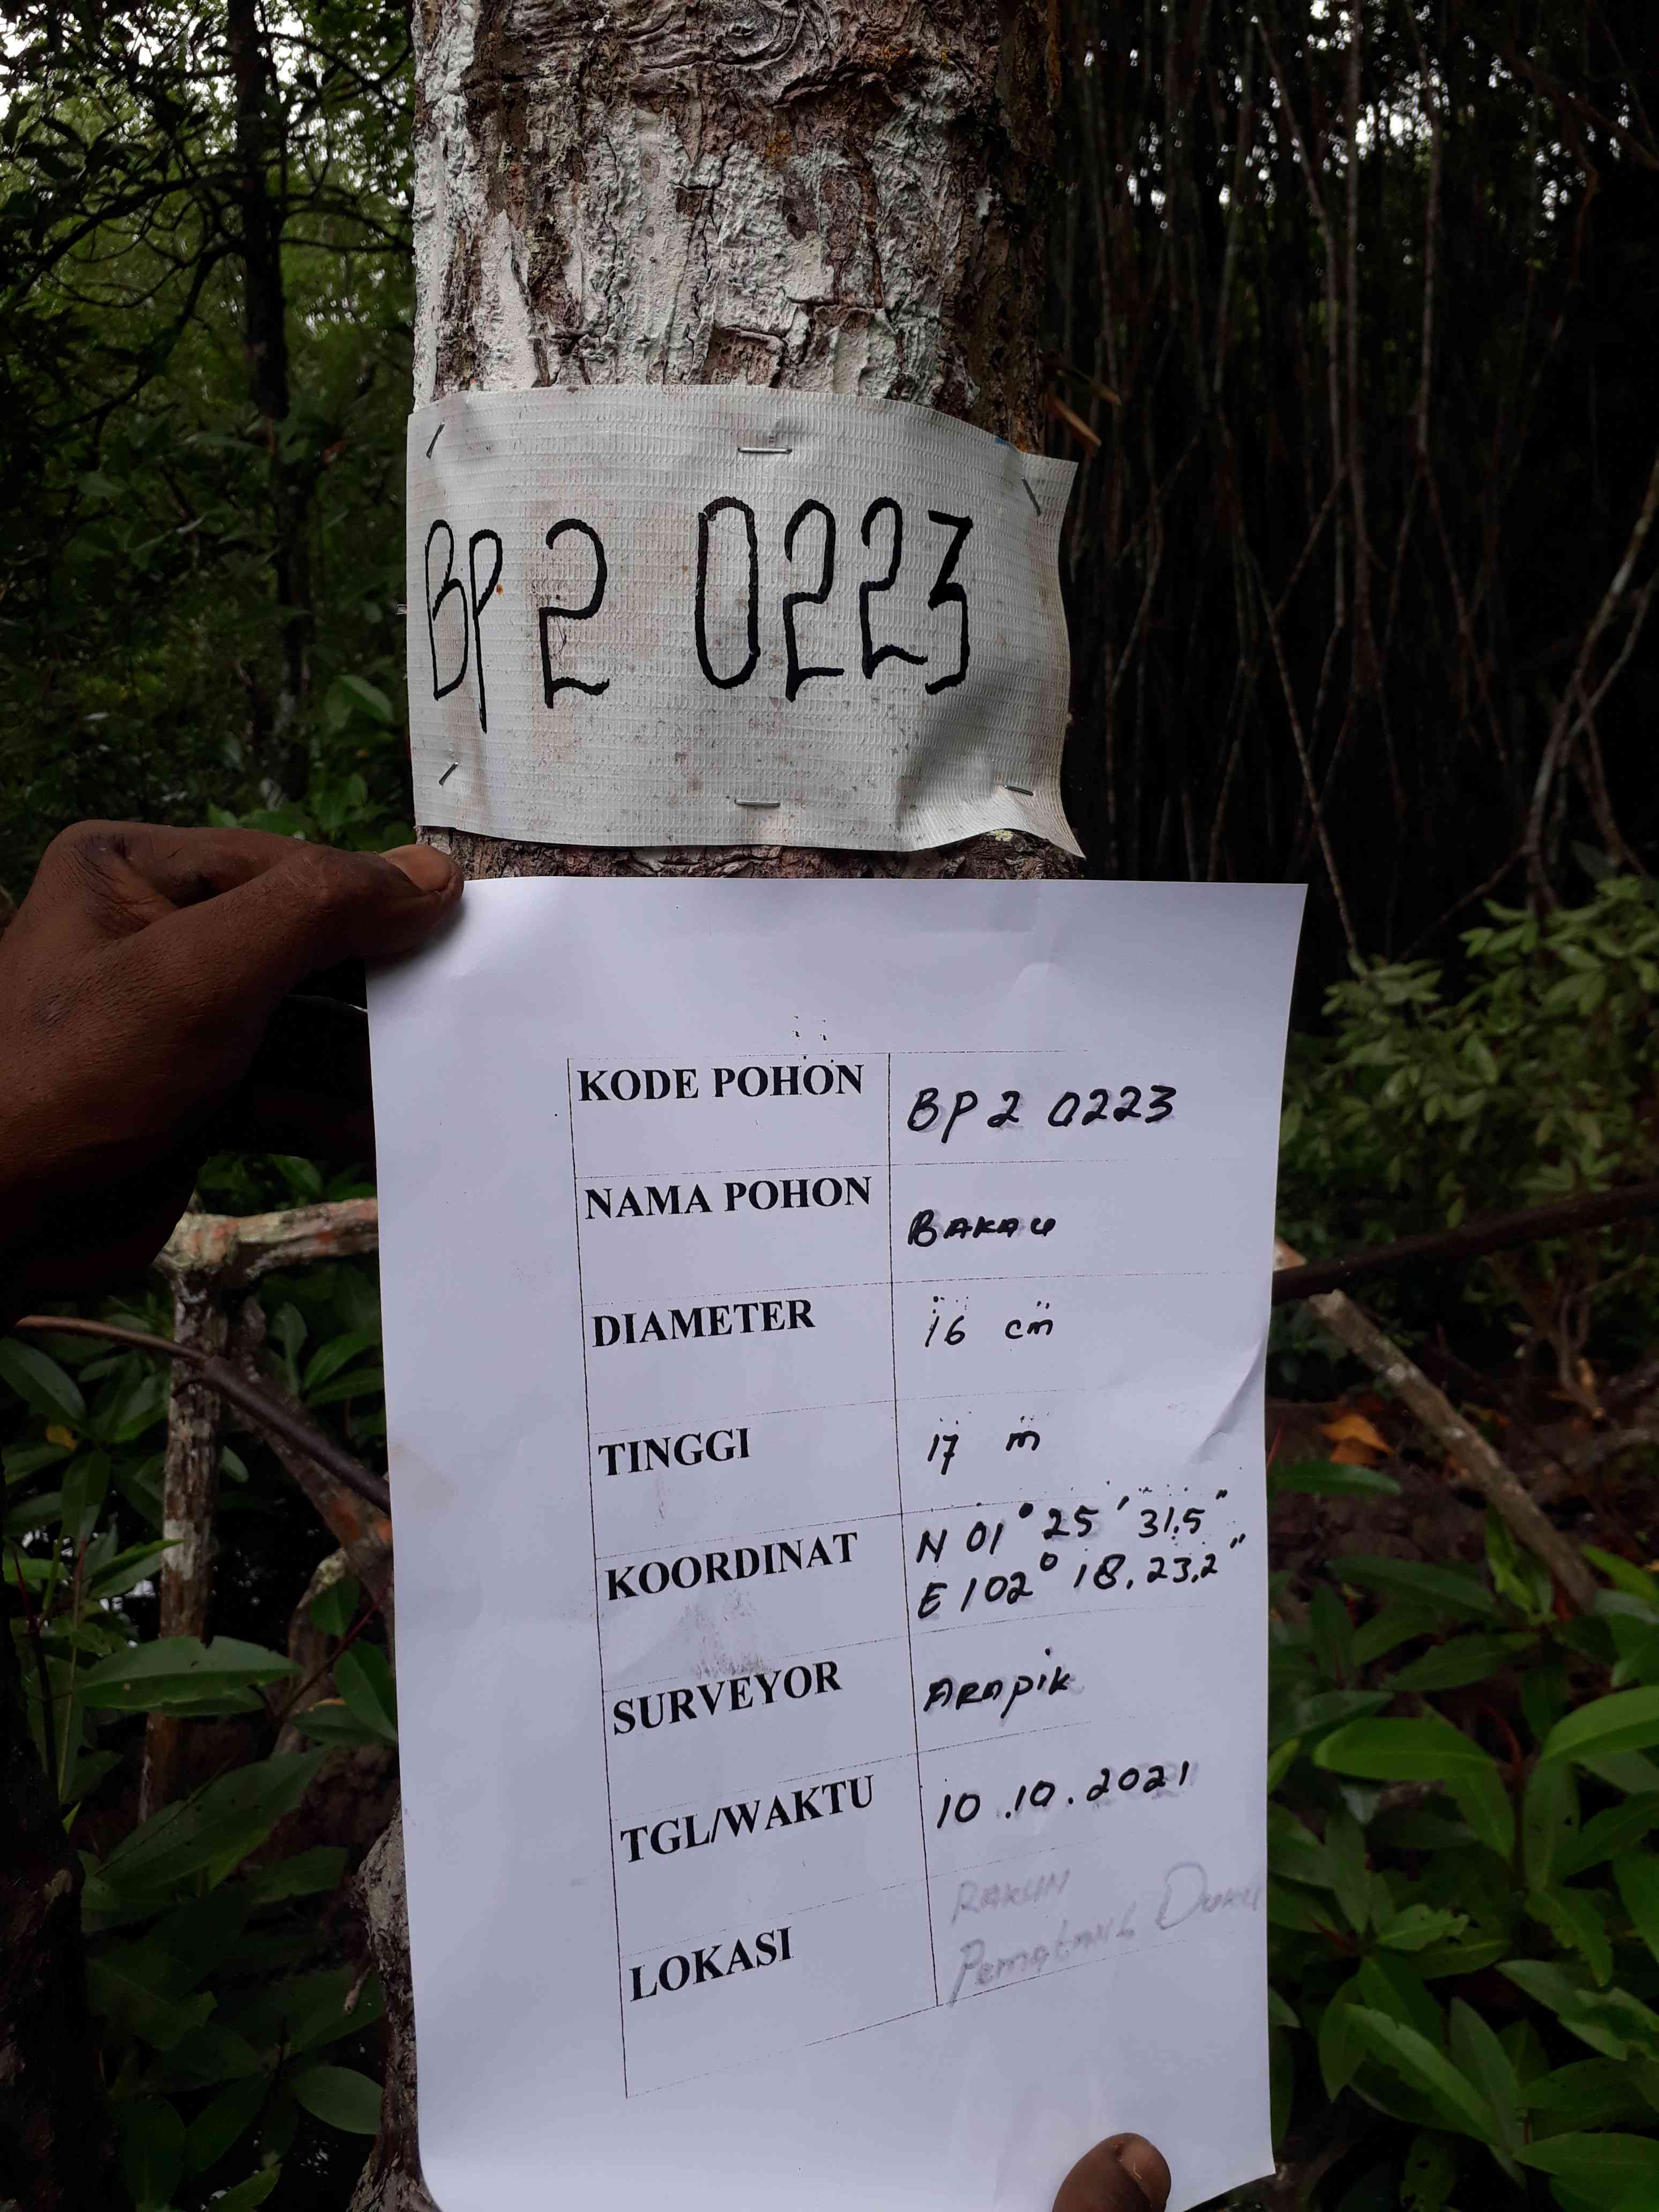 BP 2 0223
KODE POHON BP 2 0223
NAMA POHON BAKAU
DIAMETER 16 cm
TINGGI 17 m
KOORDINAT N 01° 25' 31.5"
E 102° 18. 23.2"
SURVEYOR ARAPIK
TGL/WAKTU 10.10.2021
LOKASI RAKUN
Pematang Duku